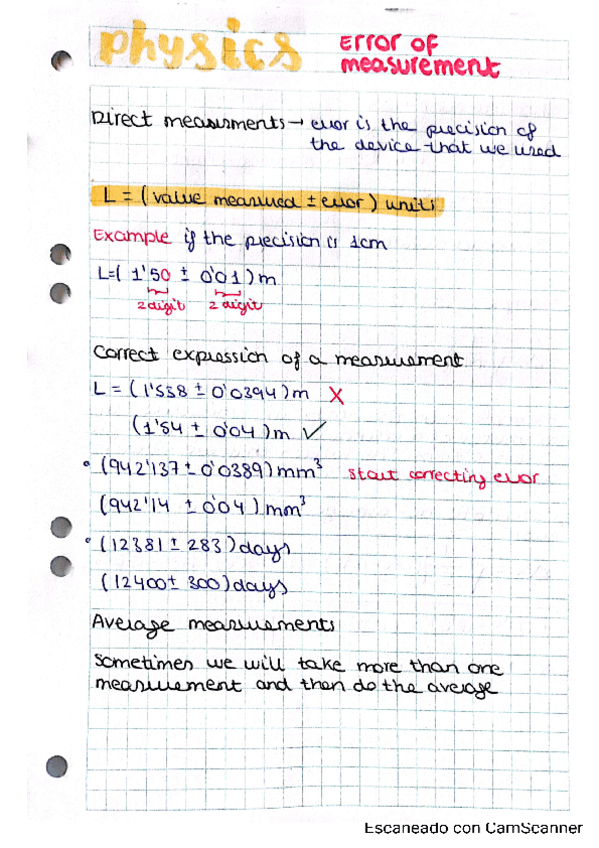 physics
Error of
measurement
Direct measurments → error is the precision of
the device that we used
L = ( value measured ± error ) units
Example if the precision is 1cm
L=( 1'50 ± 0'01 ) m
2 digit 2 digit
Correct expression of a measurement
L = ( 1'538 ± 0'0394 ) m X
( 1'54 ± 0'04 ) m ✓
• (942'137 ± 0'0389) mm³ start correcting error
(942'14 ± 0'04 ) mm³
• (12381 ± 283 ) days
(12400 ± 300) days
Average measurements
Sometimes we will take more than one
measurement and then do the average
Escaneado con CamScanner